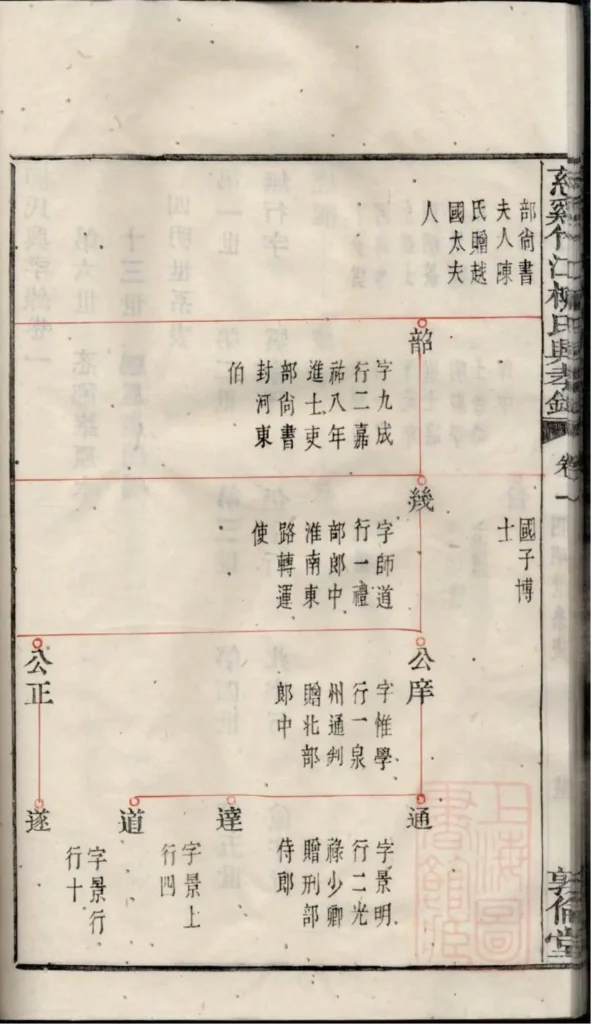 慈谿竹江柳氏興孝錄
卷一
敦倫堂
部尙書
夫人陳
氏贈越
國太夫
人
國子博
士
韶
字九成
行二嘉
祐八年
進士吏
部尙書
封河東
伯
幾
字師道
行一禮
部郎中
淮南東
路轉運
使
公庠
字惟學
行一泉
州通判
贈北部
郎中
公正
通
字景明
行二光
祿少卿
贈刑部
侍郎
達
道
字景上
行四
遂
字景行
行十
上海圖
書館藏